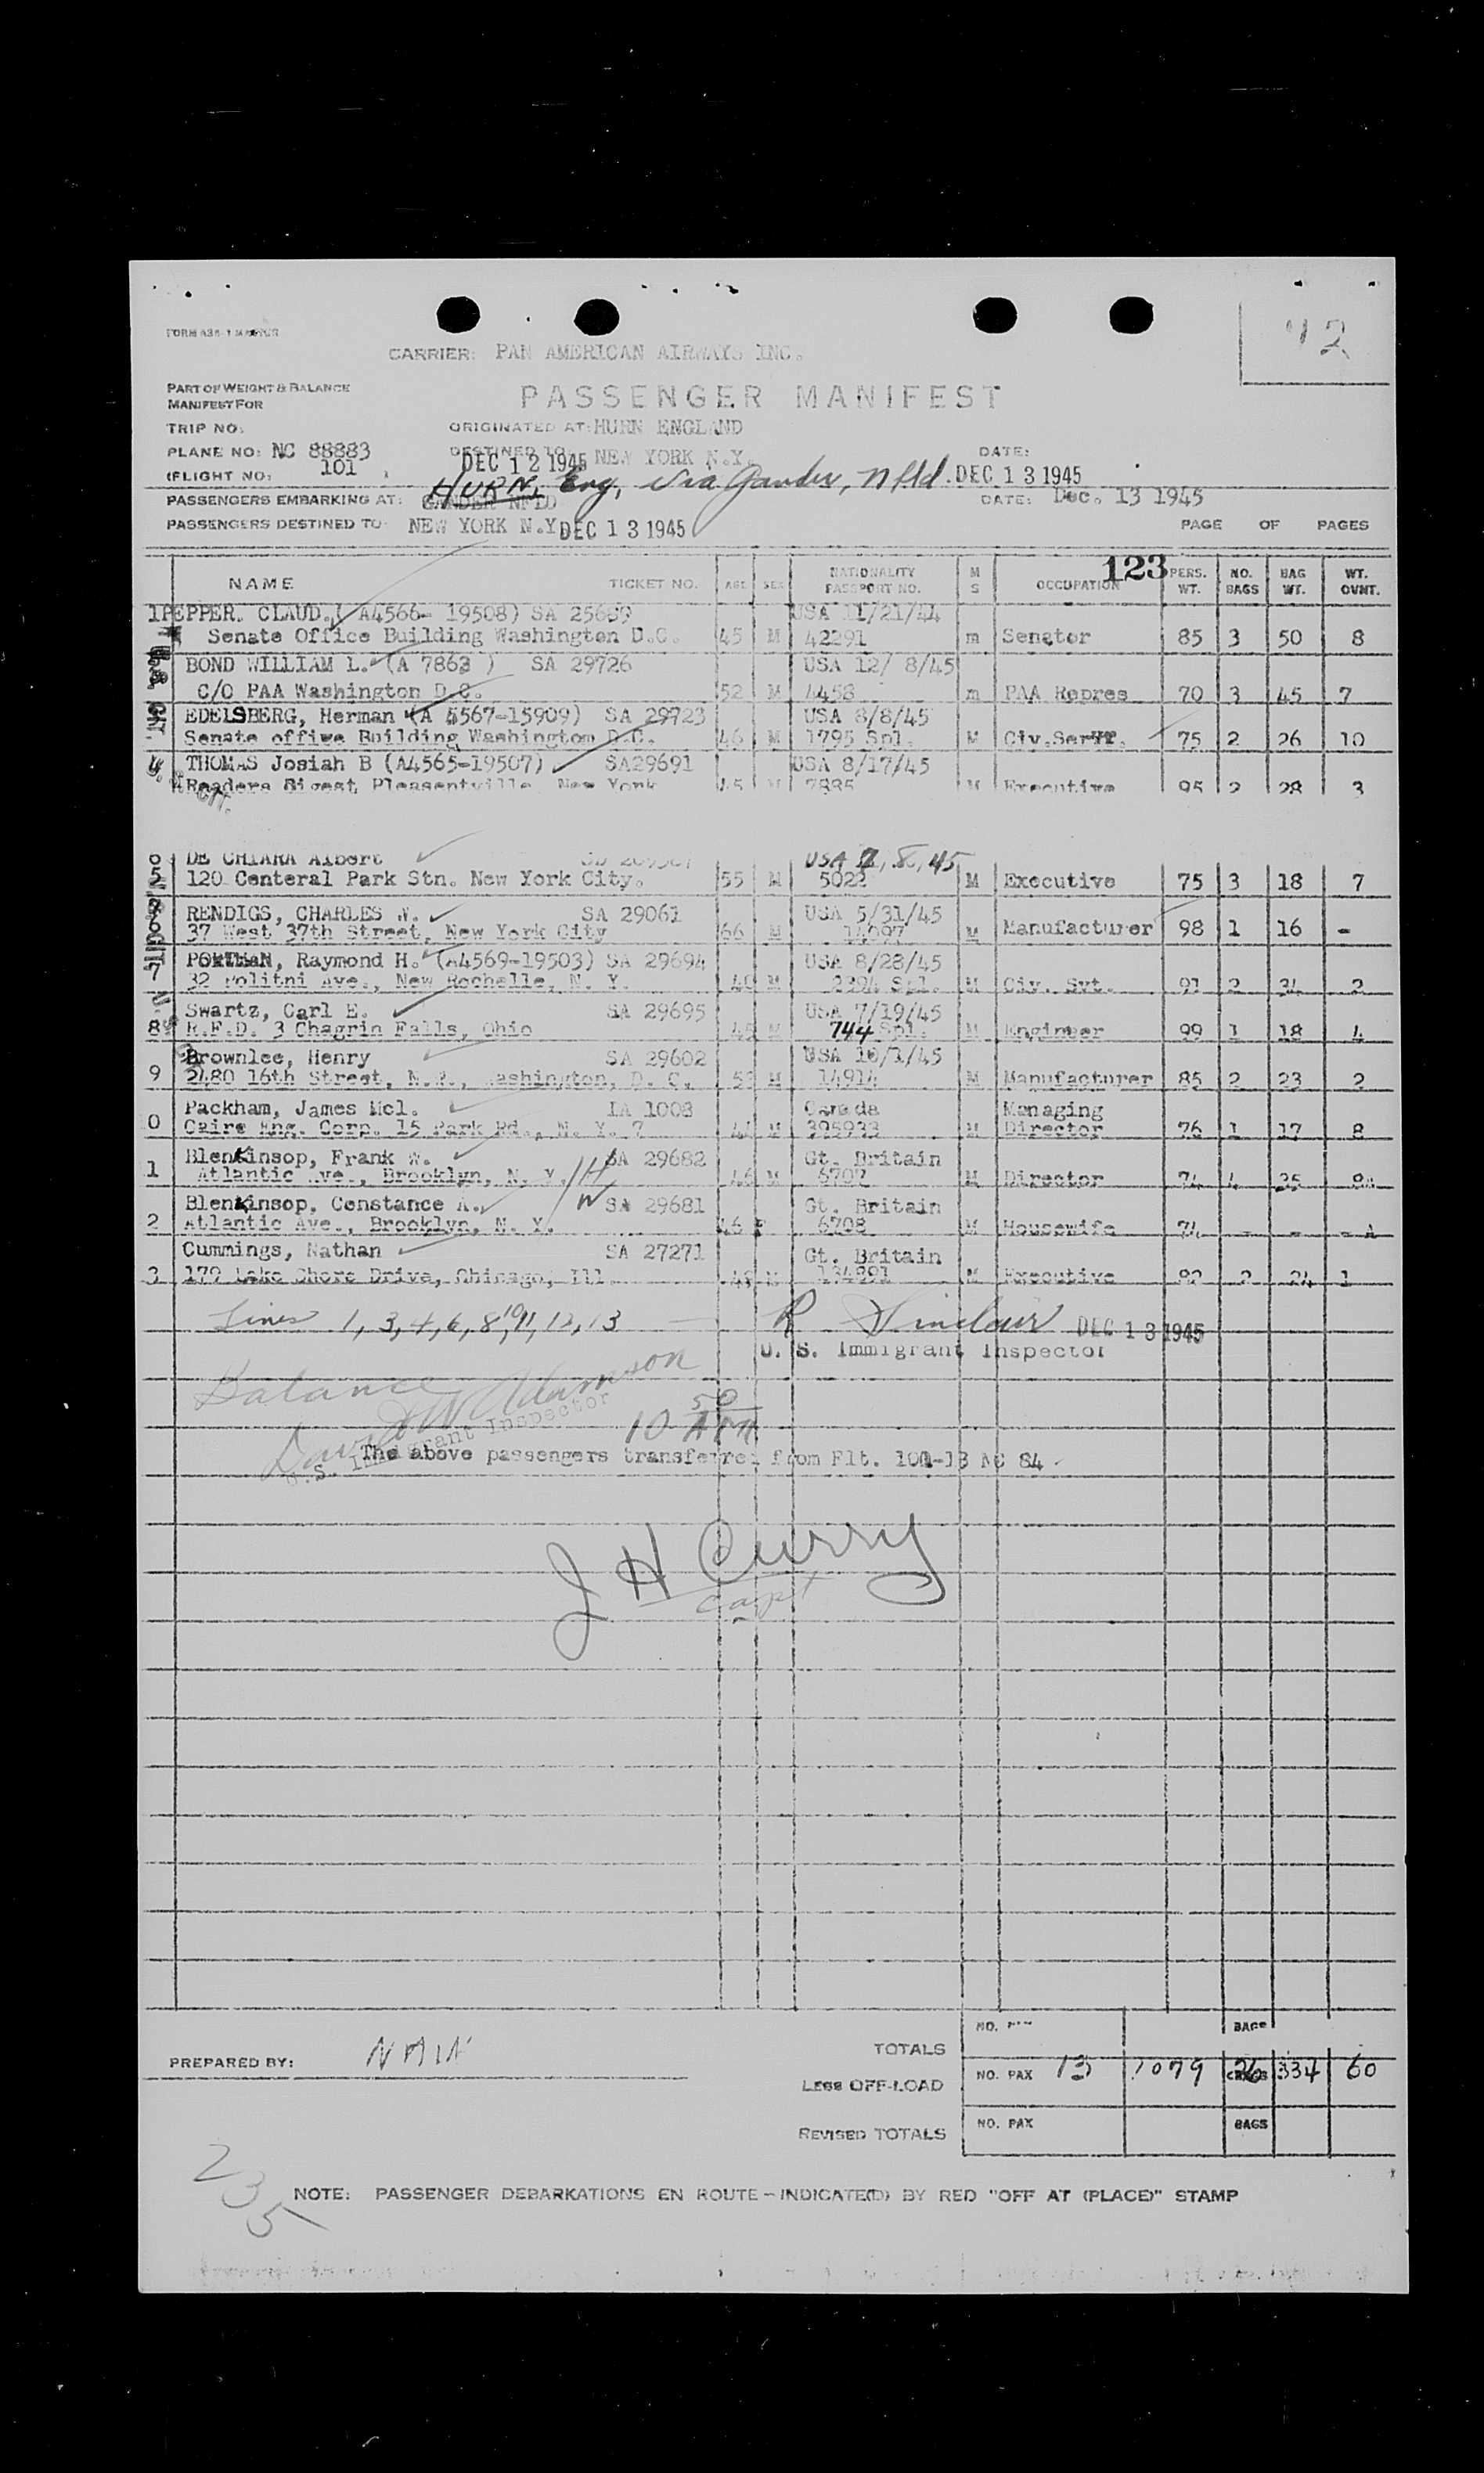 42
CARRIER: PAN AMERICAN AIRWAYS INC.
PART OF WEIGHT & BALANCE
MANIFEST FOR
PASSENGER MANIFEST
TRIP NO: ORIGINATED AT: HURN ENGLAND
PLANE NO: NC 88883 DESTINED TO: NEW YORK N.Y. DATE:
FLIGHT NO: 101 DEC 12 1945 DEC 13 1945
HURN, Eng, via Gander, Nfld.
PASSENGERS EMBARKING AT: GANDER NFLD DATE: Dec. 13 1945
PASSENGERS DESTINED TO: NEW YORK N.Y. DEC 13 1945 PAGE OF PAGES
123
NAME TICKET NO. AGE SEX NATIONALITY PASSPORT NO. M S OCCUPATION PERS. WT. NO. BAGS BAG WT. WT. OVNT.
1 PEPPER. CLAUD. (A4566- 19508) SA 25669 USA 11/21/44
Senate Office Building Washington D.C. 45 M 42291 m Senator 85 3 50 8
BOND WILLIAM L. (A 7863 ) SA 29726 USA 12/ 8/45
C/O PAA Washington D.C. 52 M 4458 m PAA Repres 70 3 45 7
EDELSBERG, Herman (A 4567-15909) SA 29723 USA 8/8/45
Senate offiwe Building Washington D.C. 46 M 1795 Spl. M Civ.Servt. 75 2 26 10
4 THOMAS Josiah B (A4565-19507) SA29691 USA 8/17/45
Readers Digest Pleasentville New York 45 M 7885 M Executive 95 2 28 3
DE CHIARA Albert USA 7, 8, 45
5 120 Centeral Park Stn. New York City. 55 M 5022 M Executive 75 3 18 7
RENDIGS, CHARLES W. SA 29061 USA 5/31/45
6 37 West 37th Street, New York City 66 M M Manufacturer 98 1 16 -
PORTMAN, Raymond H. (A4569-19503) SA 29694 USA 8/28/45
7 32 Politni Ave., New Rochelle, N. Y. 40 M 2294 Spl. M Civ. Svt. 91 2 34 2
Swartz, Carl E. SA 29695 USA 7/19/45
8 R.F.D. 3 Chagrin Falls, Ohio 45 M 744 Spl. M Engineer 99 1 18 4
Brownlee, Henry SA 29602 USA 10/1/45
9 2480 16th Street, N.W., Washington, D. C. 53 M 14914 M Manufacturer 85 2 23 2
Packham, James Mcl. IA 1008 Canada Managing
0 Caire Eng. Corp. 15 Park Rd., N. Y. 7 44 M 395933 M Director 76 1 17 8
Blenkinsop, Frank W. SA 29682 Gt. Britain
1 Atlantic Ave., Brooklyn, N. Y. H 46 M 6707 M Director 74 4 35 8A
Blenkinsop, Constance A. W SA 29681 Gt. Britain
2 Atlantic Ave., Brooklyn, N. Y. 46 F 6708 M Housewife 74 - - - A
Cummings, Nathan SA 27271 Gt. Britain
3 179 Lake Shore Drive, Chicago, Ill 49 M 134891 M Executive 82 2 24 1
Lines 1, 3, 4, 6, 8, 10, 11, 12, 13 R Sinclair DEC 13 1945
U. S. Immigrant Inspector
Balance
David W Adamson
U.S. Immigrant Inspector
10 50 AM
The above passengers transferred from Flt. 101-13 NC 84
J H Curry
Capt
NO. BAGS
TOTALS
PREPARED BY: NAIN
LESS OFF-LOAD NO. PAX 13 1079 26 334 60
REVISED TOTALS NO. PAX BAGS
235
NOTE: PASSENGER DEBARKATIONS EN ROUTE - INDICATE(D) BY RED "OFF AT (PLACE)" STAMP